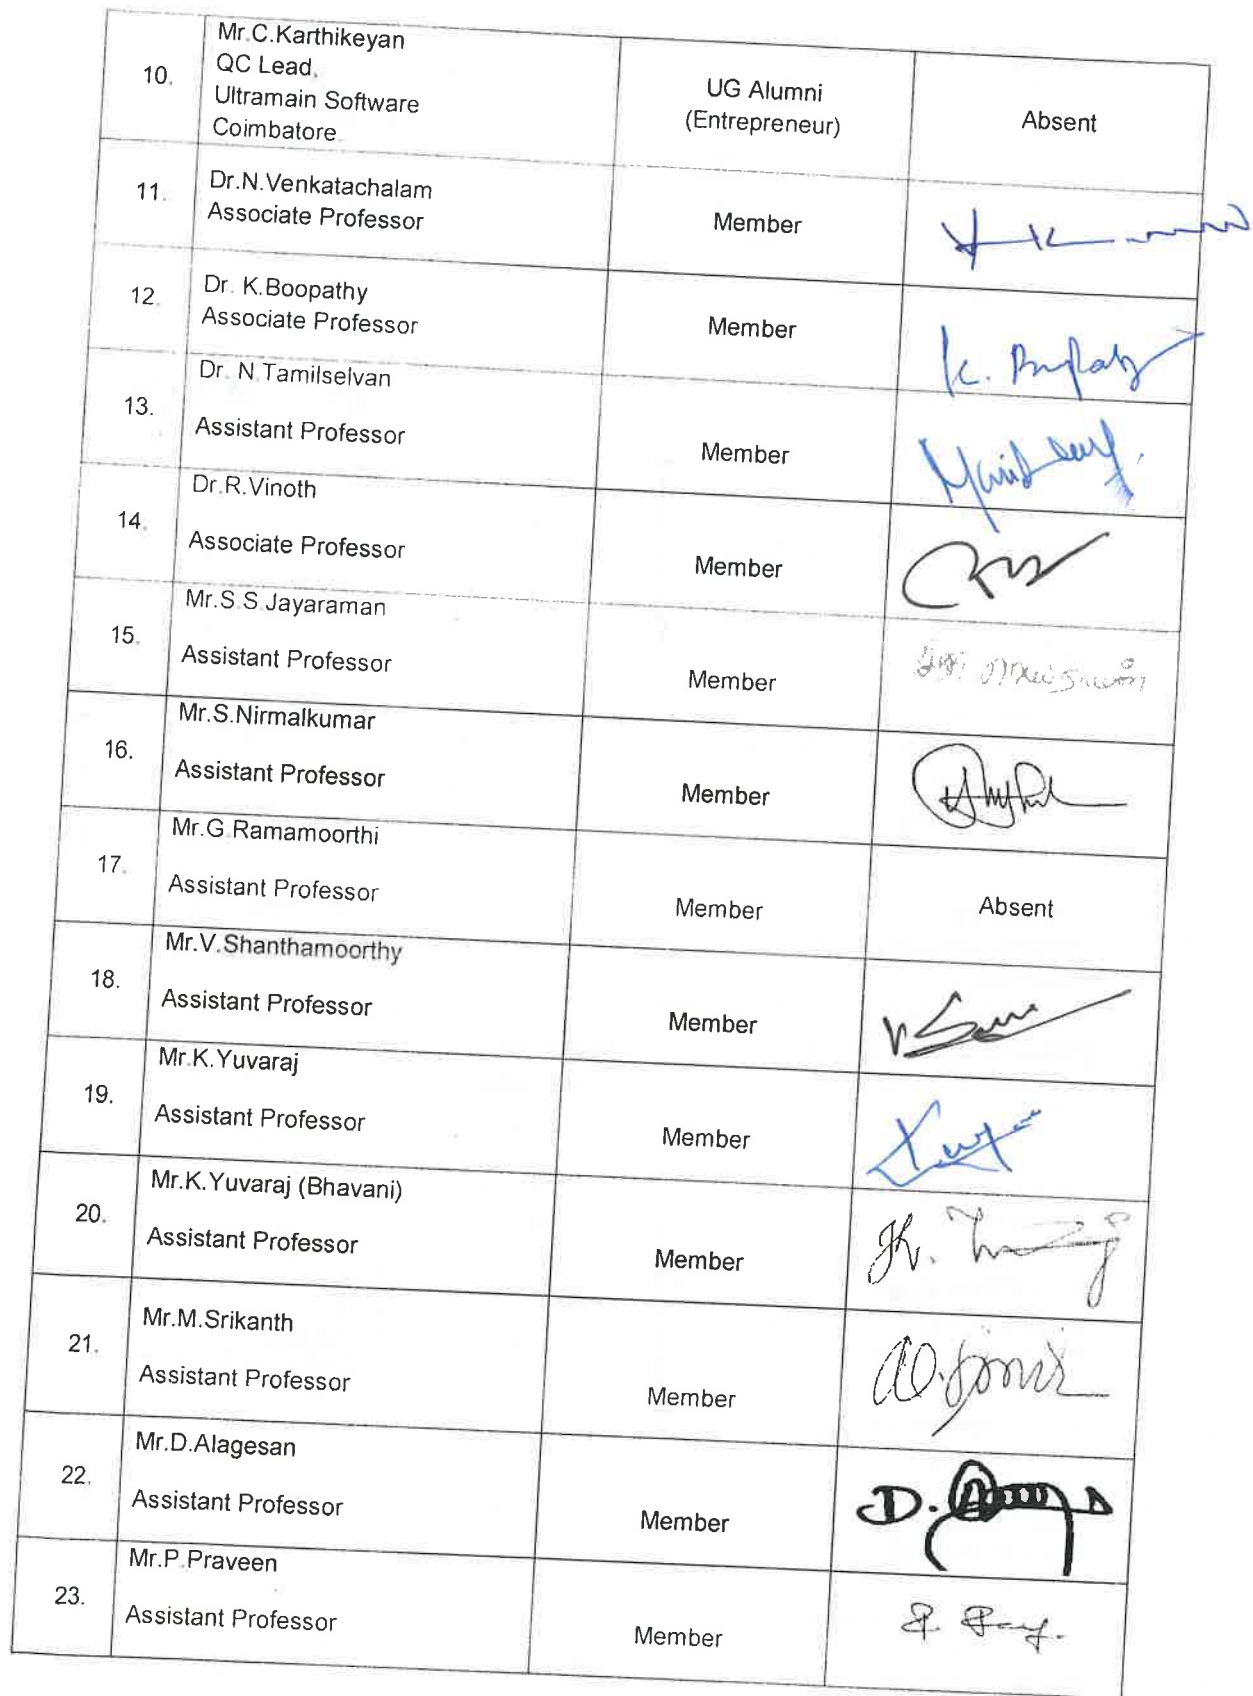 10.
Mr.C.Karthikeyan
QC Lead,
Ultramain Software
Coimbatore.
UG Alumni
(Entrepreneur)
Absent
11.
Dr.N.Venkatachalam
Associate Professor
Member
12.
Dr. K.Boopathy
Associate Professor
Member
13.
Dr. N.Tamilselvan
Assistant Professor
Member
14.
Dr.R.Vinoth
Associate Professor
Member
15.
Mr.S.S.Jayaraman
Assistant Professor
Member
16.
Mr.S.Nirmalkumar
Assistant Professor
Member
17.
Mr.G.Ramamoorthi
Assistant Professor
Member
Absent
18.
Mr.V.Shanthamoorthy
Assistant Professor
Member
19.
Mr.K.Yuvaraj
Assistant Professor
Member
20.
Mr.K.Yuvaraj (Bhavani)
Assistant Professor
Member
21.
Mr.M.Srikanth
Assistant Professor
Member
22.
Mr.D.Alagesan
Assistant Professor
Member
23.
Mr.P.Praveen
Assistant Professor
Member